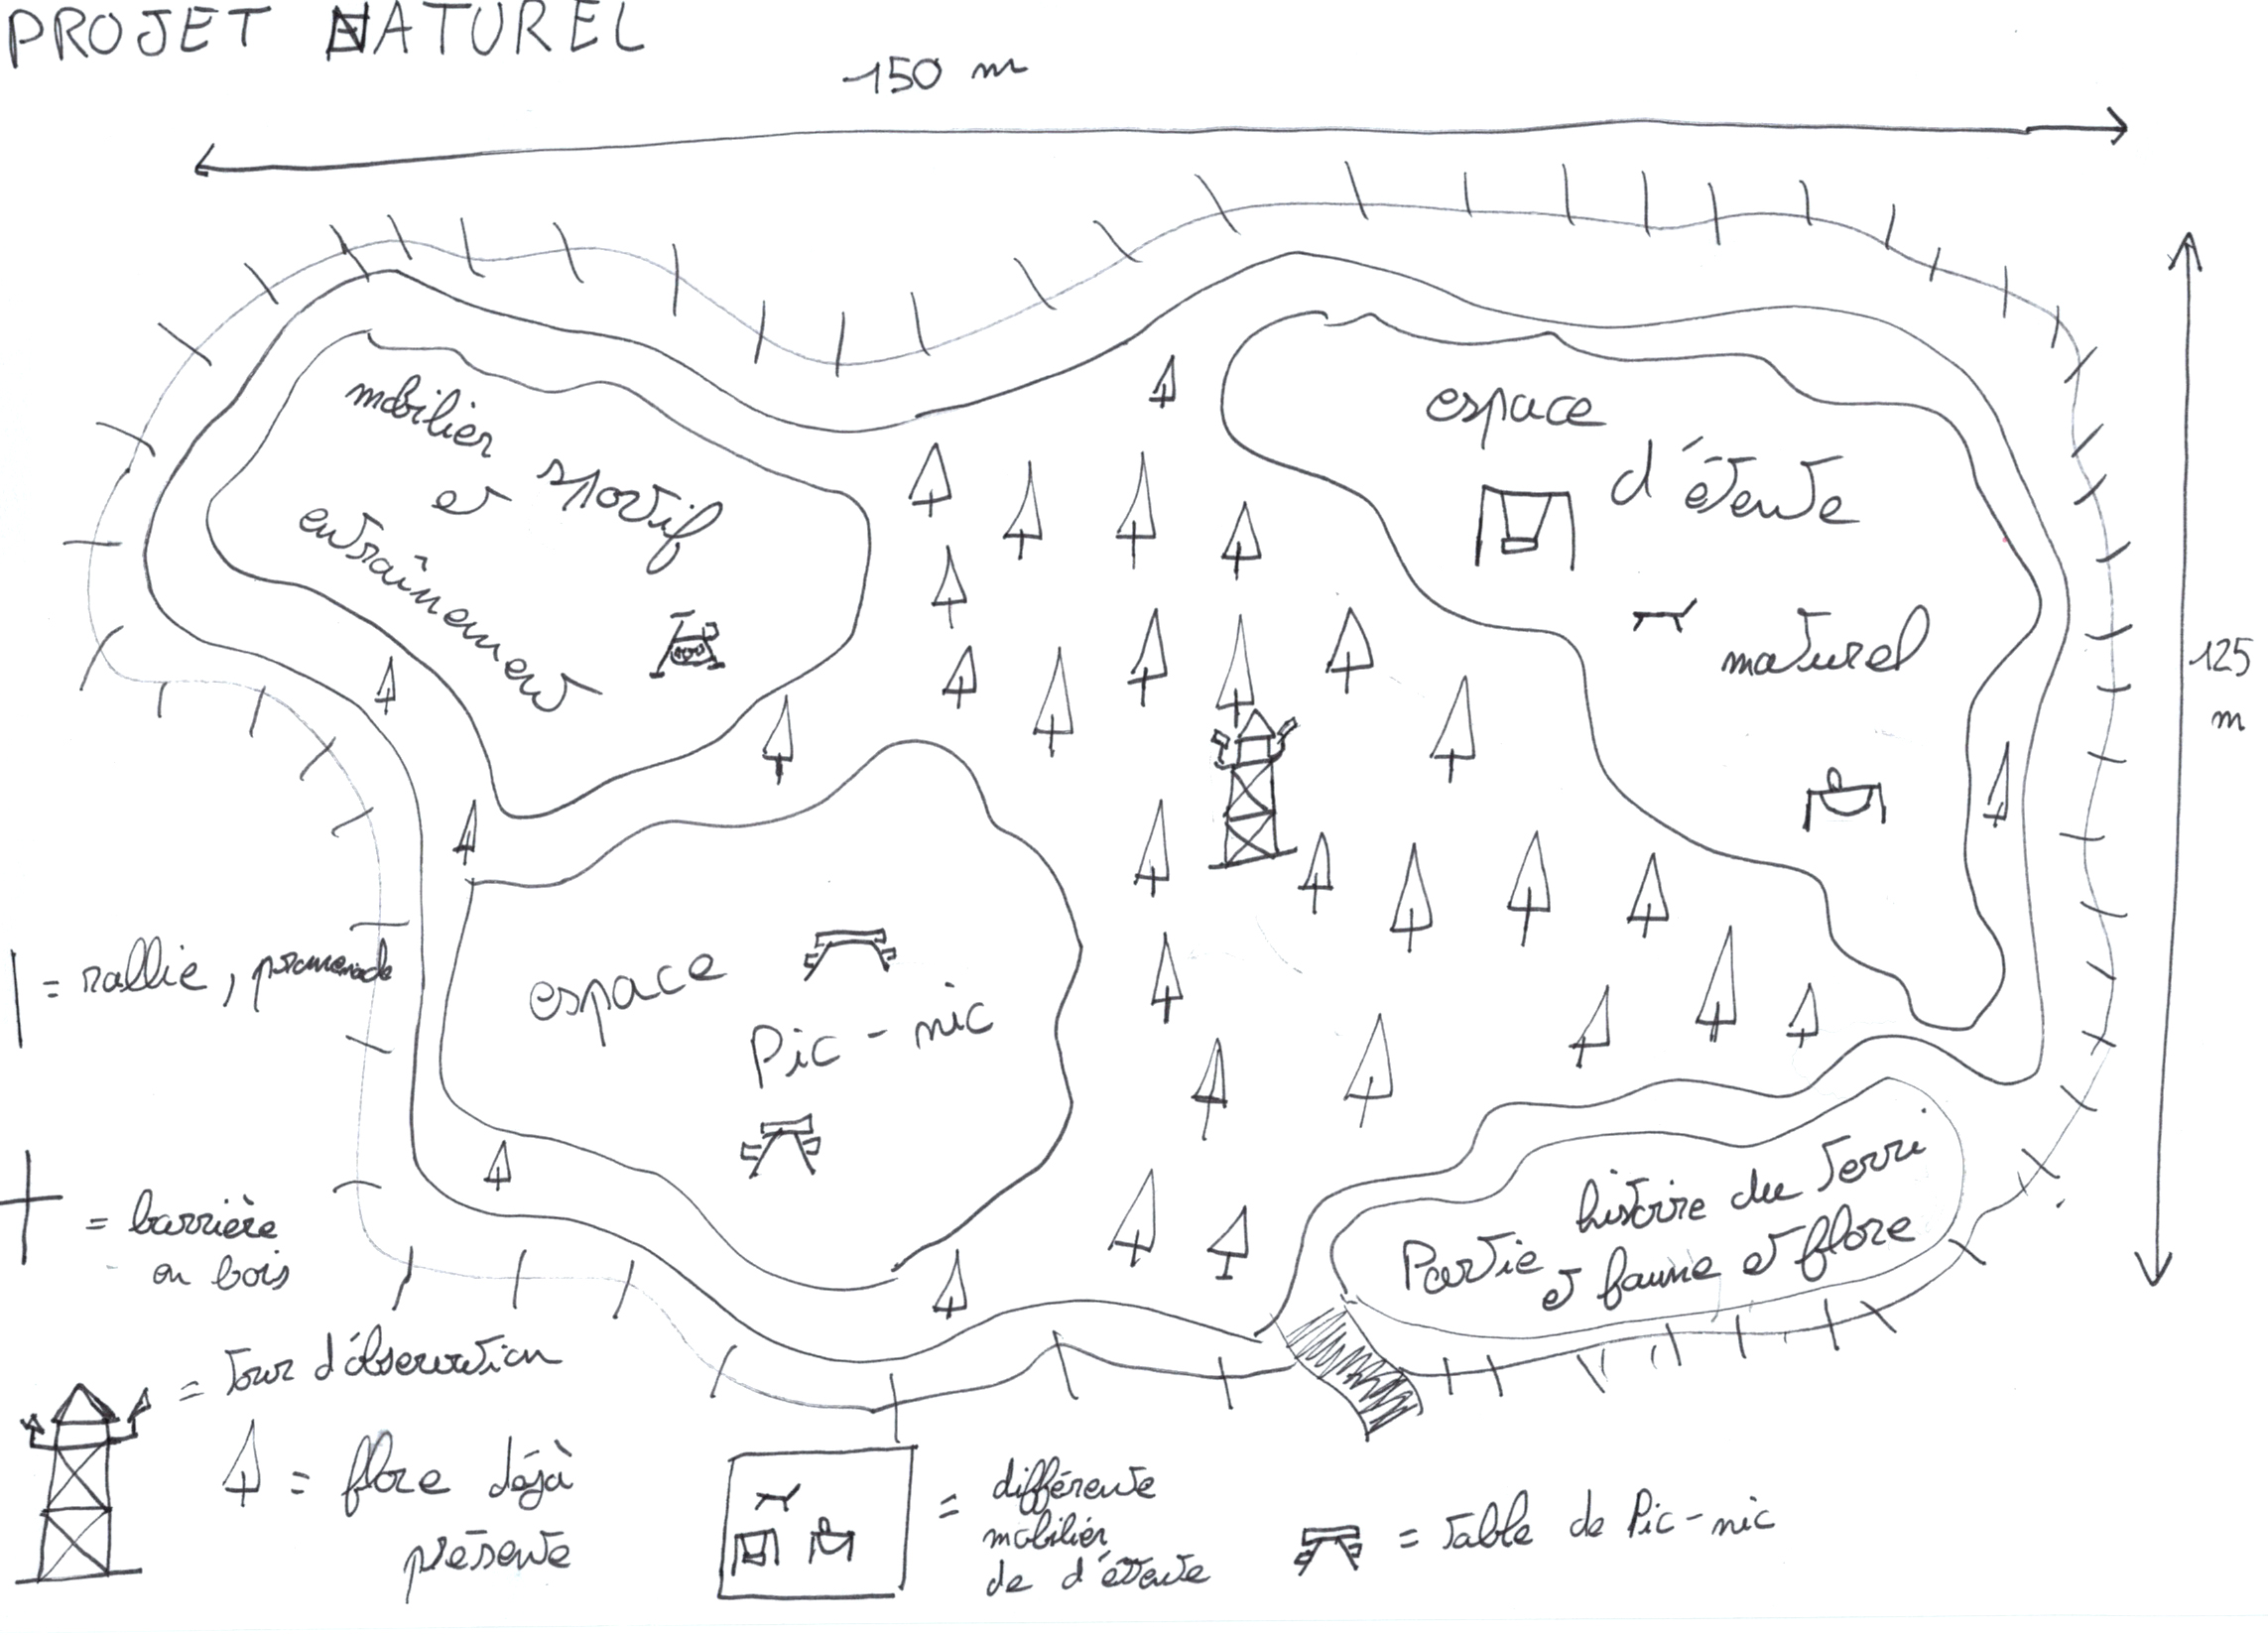 PROJET NATUREL
150 m
mobilier
et sportif
entraînement
espace
d'étente
naturel
125
m
espace
Pic-nic
| = rallie, promenade
histoire du Terri
Partie et faune et flore
= barrière
en bois
= Tour d'observation
= flore déjà
présente
= différente
mobilier
de d'étente
= Table de Pic-nic